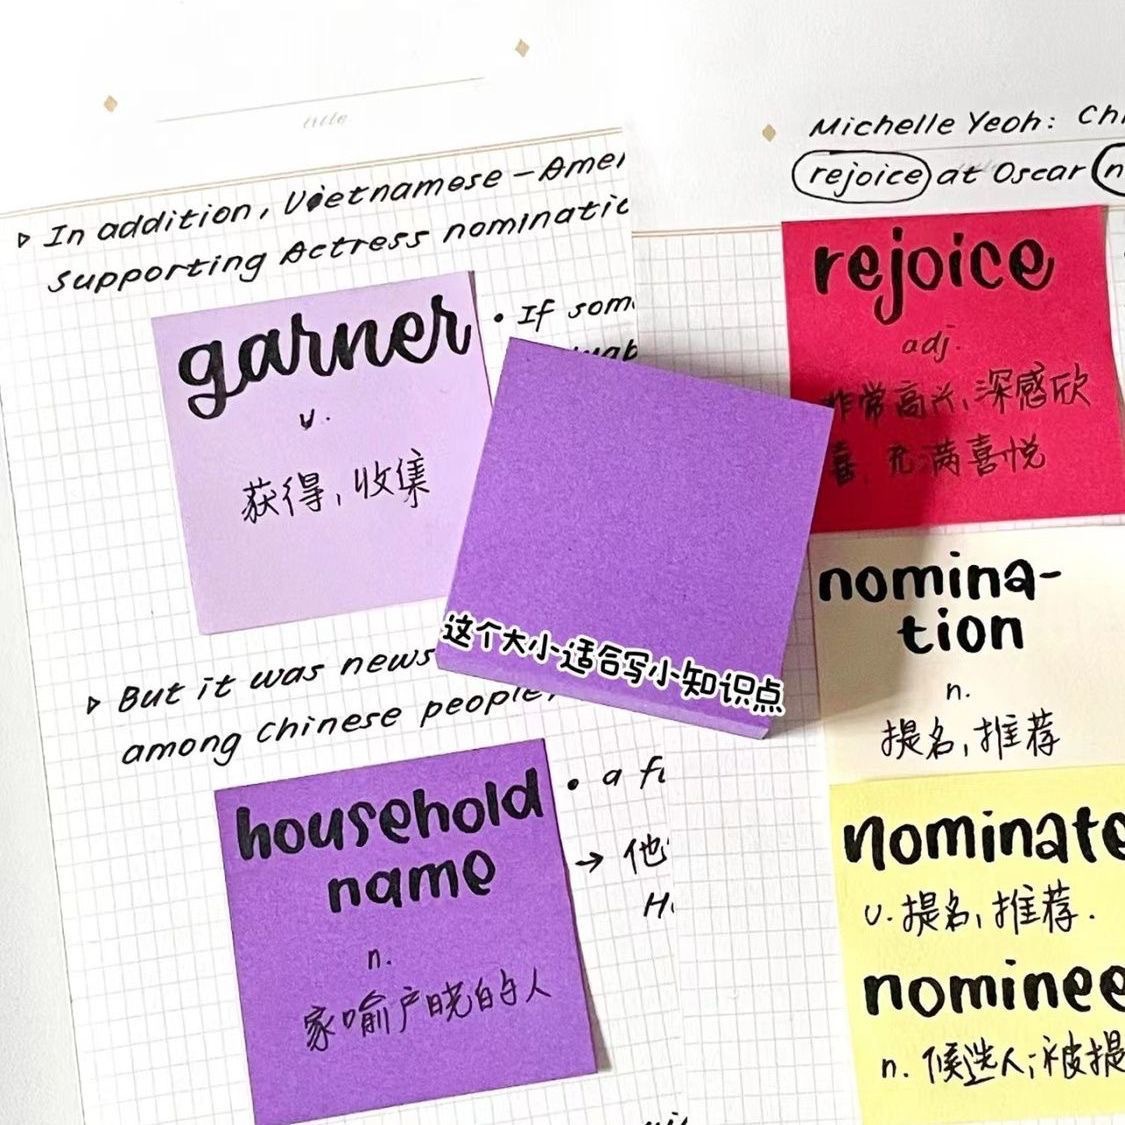 title
▷ In addition, Vietnamese-Amer
Supporting Actress nominatio
garner
v.
获得,收集
• If som
▷ But it was news
among Chinese people,
household
name
n.
家喻户晓的人
• a fi
→ 他
这个大小适合写小知识点
Michelle Yeoh: Chi
rejoice at Oscar n
rejoice
adj.
非常高兴,深感欣
喜,充满喜悦
nomina-
tion
n.
提名,推荐
nominate
v. 提名,推荐.
nominee
n. 候选人;被提